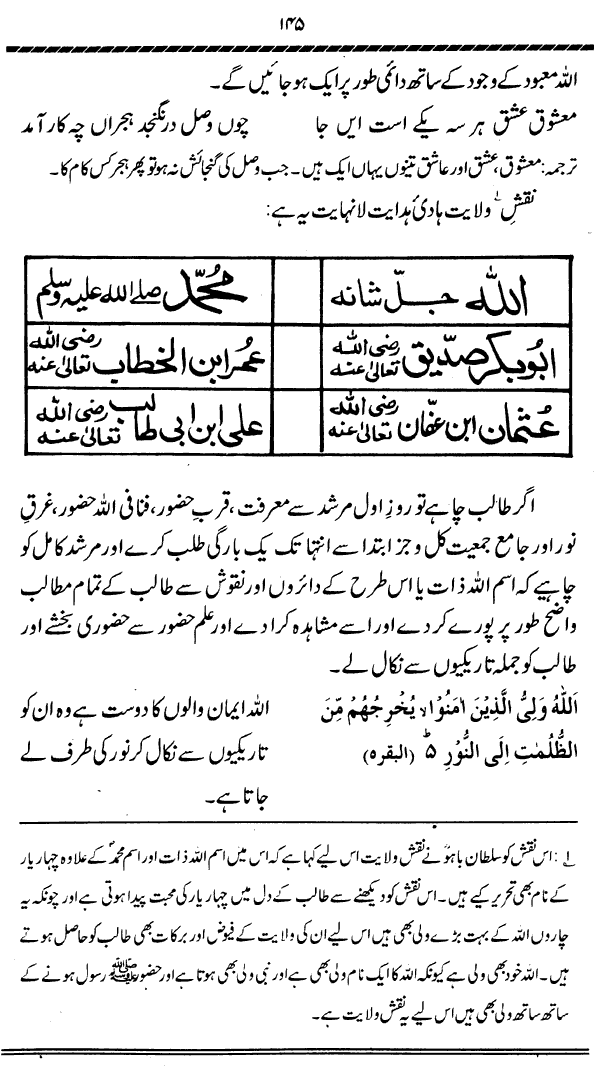 ۱۴۵
اللہ معبود کے وجود کے ساتھ دائمی طور پر ایک ہو جائیں گے۔
معشوق عشق ہر سہ یکے است ایں جا چوں وصل درنگنجد ہجراں چہ کار آمد
ترجمہ: معشوق، عشق اور عاشق تینوں یہاں ایک ہیں۔ جب وصل کی گنجائش نہ ہو تو پھر ہجر کس کام کا۔
نقشِ ۱؎ ولایت ہادیٔ ہدایت لا نہایت یہ ہے:
اللہ جلّ شانہ محمّد صلے اللہ علیہ وسلم
ابوبکر صدّیق رضی اللہ تعالیٰ عنہ عمر ابن الخطاب رضی اللہ تعالیٰ عنہ
عُثمان ابن عفّان رضی اللہ تعالیٰ عنہ علی ابن ابی طالب رضی اللہ تعالیٰ عنہ
اگر طالب چاہے تو روزِ اول مرشد سے معرفت، قربِ حضور، فنا فی اللہ حضور، غرقِ
نور اور جامع جمعیت کل و جز ابتدا سے انتہا تک یک بارگی طلب کرے اور مرشد کامل کو
چاہیے کہ اسم اللہ ذات یا اس طرح کے دائروں اور نقوش سے طالب کے تمام مطالب
واضح طور پر پورے کر دے اور اسے مشاہدہ کرا دے اور علم حضور سے حضوری بخشے اور
طالب کو جملہ تاریکیوں سے نکال لے۔
اَللّٰهُ وَلِیُّ الَّذِیْنَ اٰمَنُوْا لا یُخْرِجُهُمْ مِّنَ
الظُّلُمٰتِ اِلَی النُّوْرِ ؕ (البقرہ)
اللہ ایمان والوں کا دوست ہے وہ ان کو
تاریکیوں سے نکال کر نور کی طرف لے
جاتا ہے۔
۱؎ : اس نقش کو سلطان باہوؒ نے نقش ولایت اس لیے کہا ہے کہ اس میں اسم اللہ ذات اور اسم محمدؐ کے علاوہ چہار یار
کے نام بھی تحریر کیے ہیں۔ اس نقش کو دیکھنے سے طالب کے دل میں چہار یار کی محبت پیدا ہوتی ہے اور چونکہ یہ
چاروں اللہ کے بہت بڑے ولی بھی ہیں اس لیے ان کی ولایت کے فیوض اور برکات بھی طالب کو حاصل ہوتے
ہیں۔ اللہ خود بھی ولی ہے کیونکہ اللہ کا ایک نام ولی بھی ہے اور نبی ولی بھی ہوتا ہے اور حضور ﷺ رسول ہونے کے
ساتھ ساتھ ولی بھی ہیں اس لیے یہ نقش ولایت ہے۔